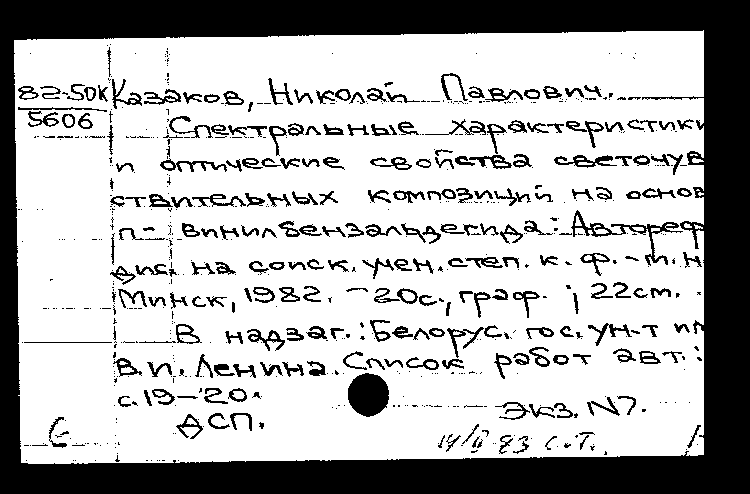 82-50к Казаков, Николай Павлович.
5606 Спектральные характеристики
и оптические свойства светочув
ствительных композиций на основ
п-винилбензальдегида: Автореф
дис. на соиск. учен. степ. к. ф.-м. н
Минск, 1982. - 20с., граф. ; 22см.
В надзаг.: Белорус. гос. ун-т им
В.И. Ленина. Список работ авт.:
с. 19-20.
ДСП. Экз. N7.
14/II 83 С.Т.